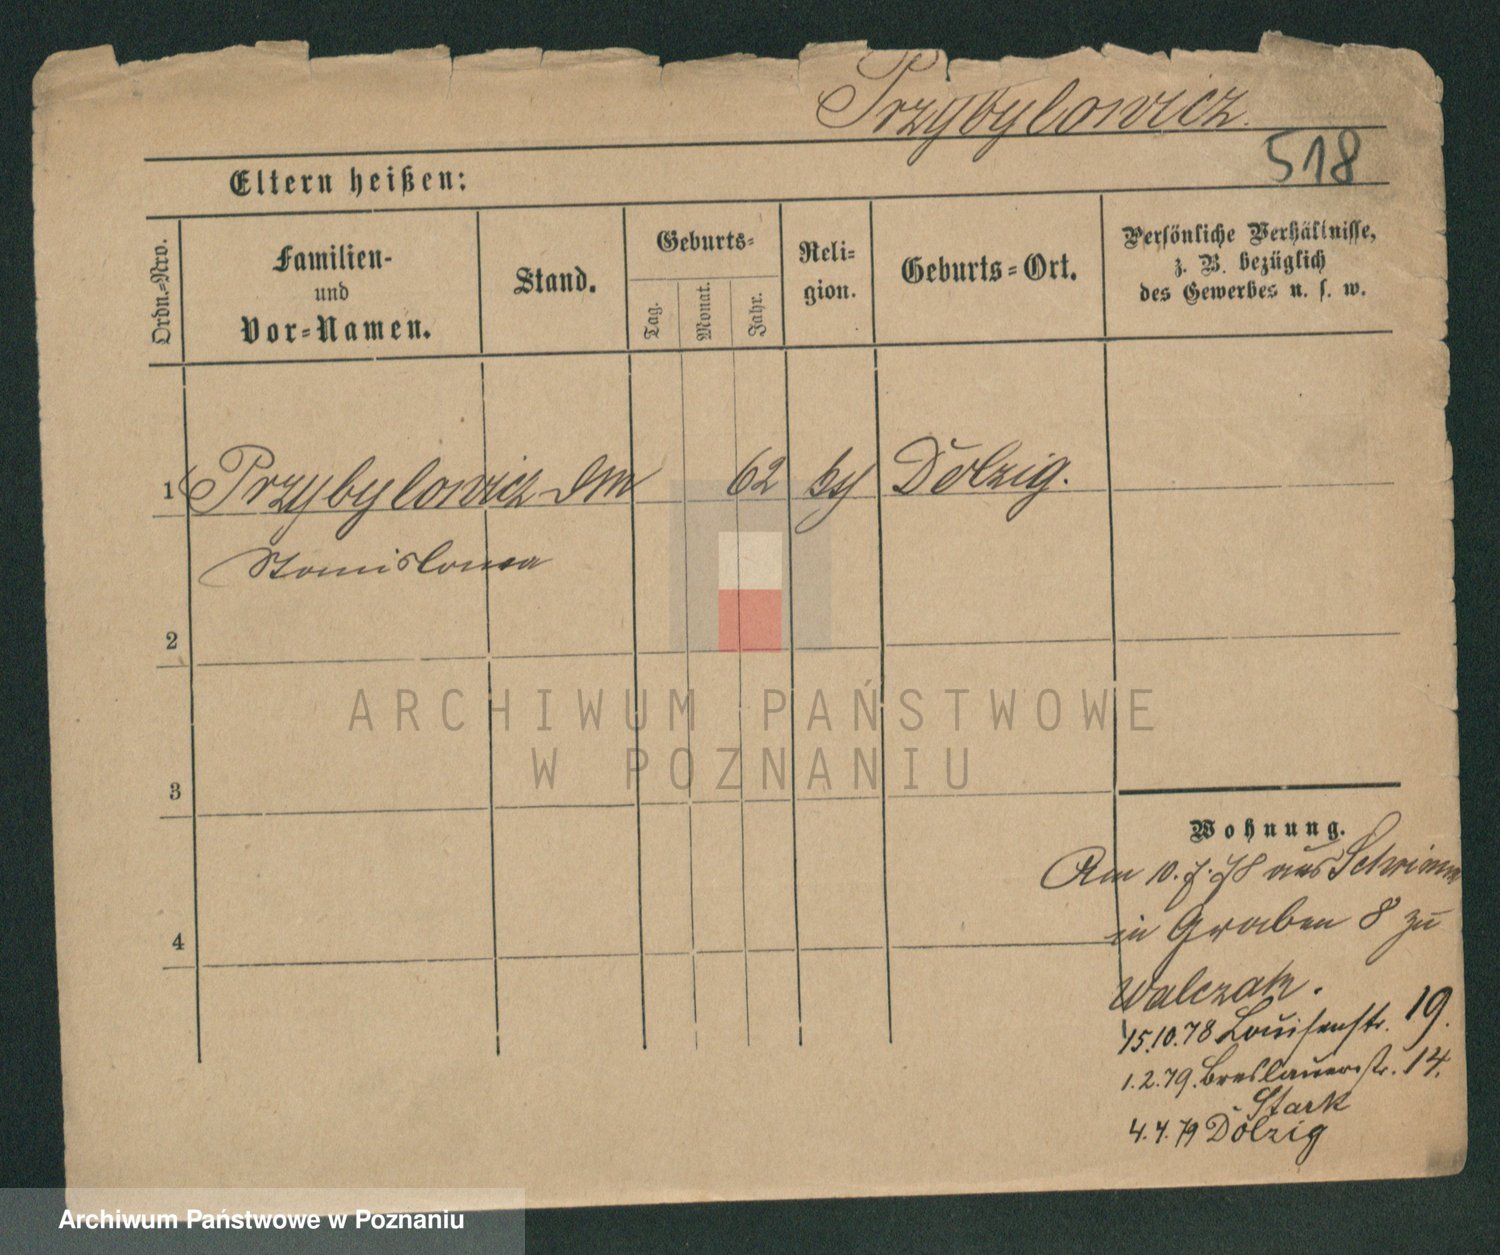 Przybylowicz.
518
Eltern heißen:
Ordn.-Nro.
Familien-
und
Vor-Namen.
Stand.
Geburts-
Tag.
Monat.
Jahr.
Reli-
gion.
Geburts-Ort.
Persönliche Verhältnisse,
z. B. bezüglich
des Gewerbes u. s. w.
1 Przybylowicz 62 Dolzig.
Stanislawa
2
3
4
Wohnung.
Am 10. 7. 78 aus Schrimm
in Graben 8 zu
Walczak.
15.10.78 Louisenstr. 19.
1.2.79. Breslauerstr. 14.
Stark
4.4.79 Dolzig
ARCHIWUM PAŃSTWOWE
W POZNANIU
Archiwum Państwowe w Poznaniu